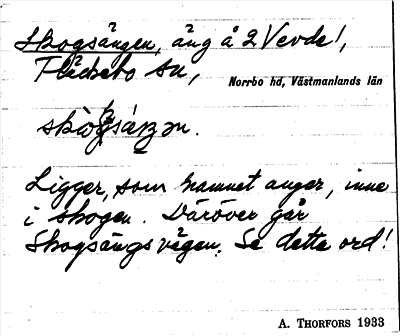 Skogsängen, äng å 2 Vevde!,
Fläckebo sn,
Norrbo hd, Västmanlands län
Ligger, som namnet anger, inne
i skogen. Däröver går
Skogsängsvägen. Se detta ord!
A. THORFORS 1933